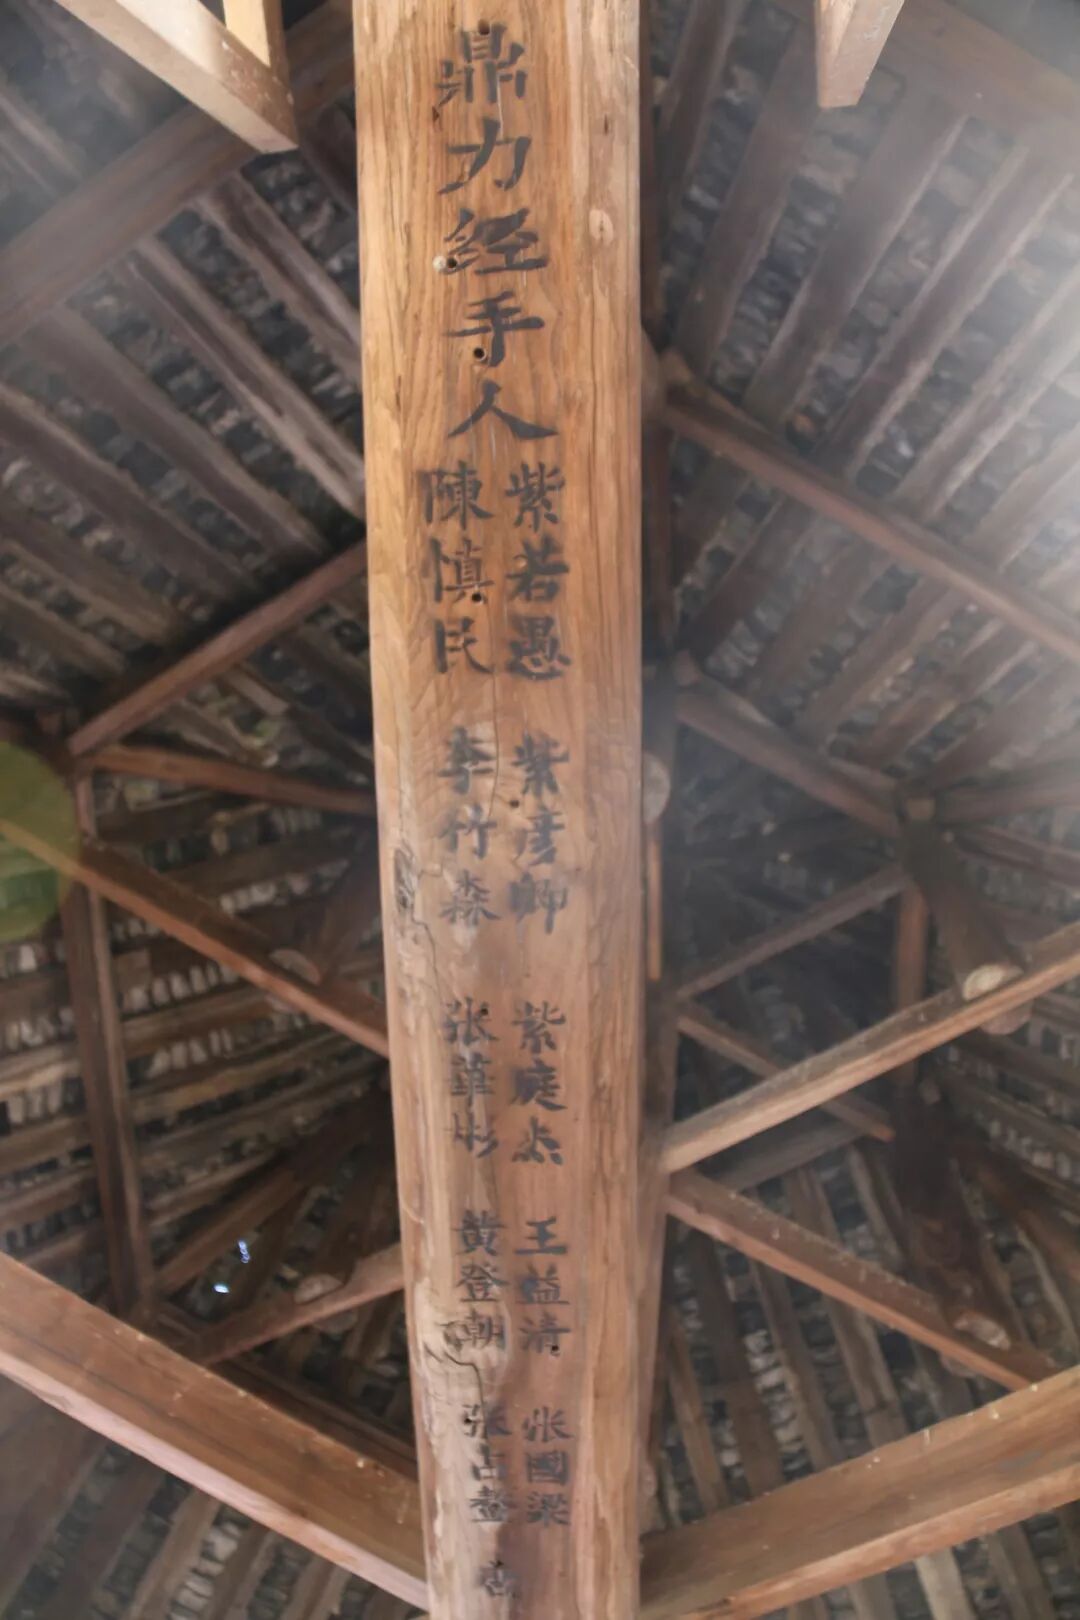 鼎力经手人
紫若愚 紫彦卿 紫庭 王益清 张國梁
陳慎民 李竹森 张華彬 黄登朝 张占鳌